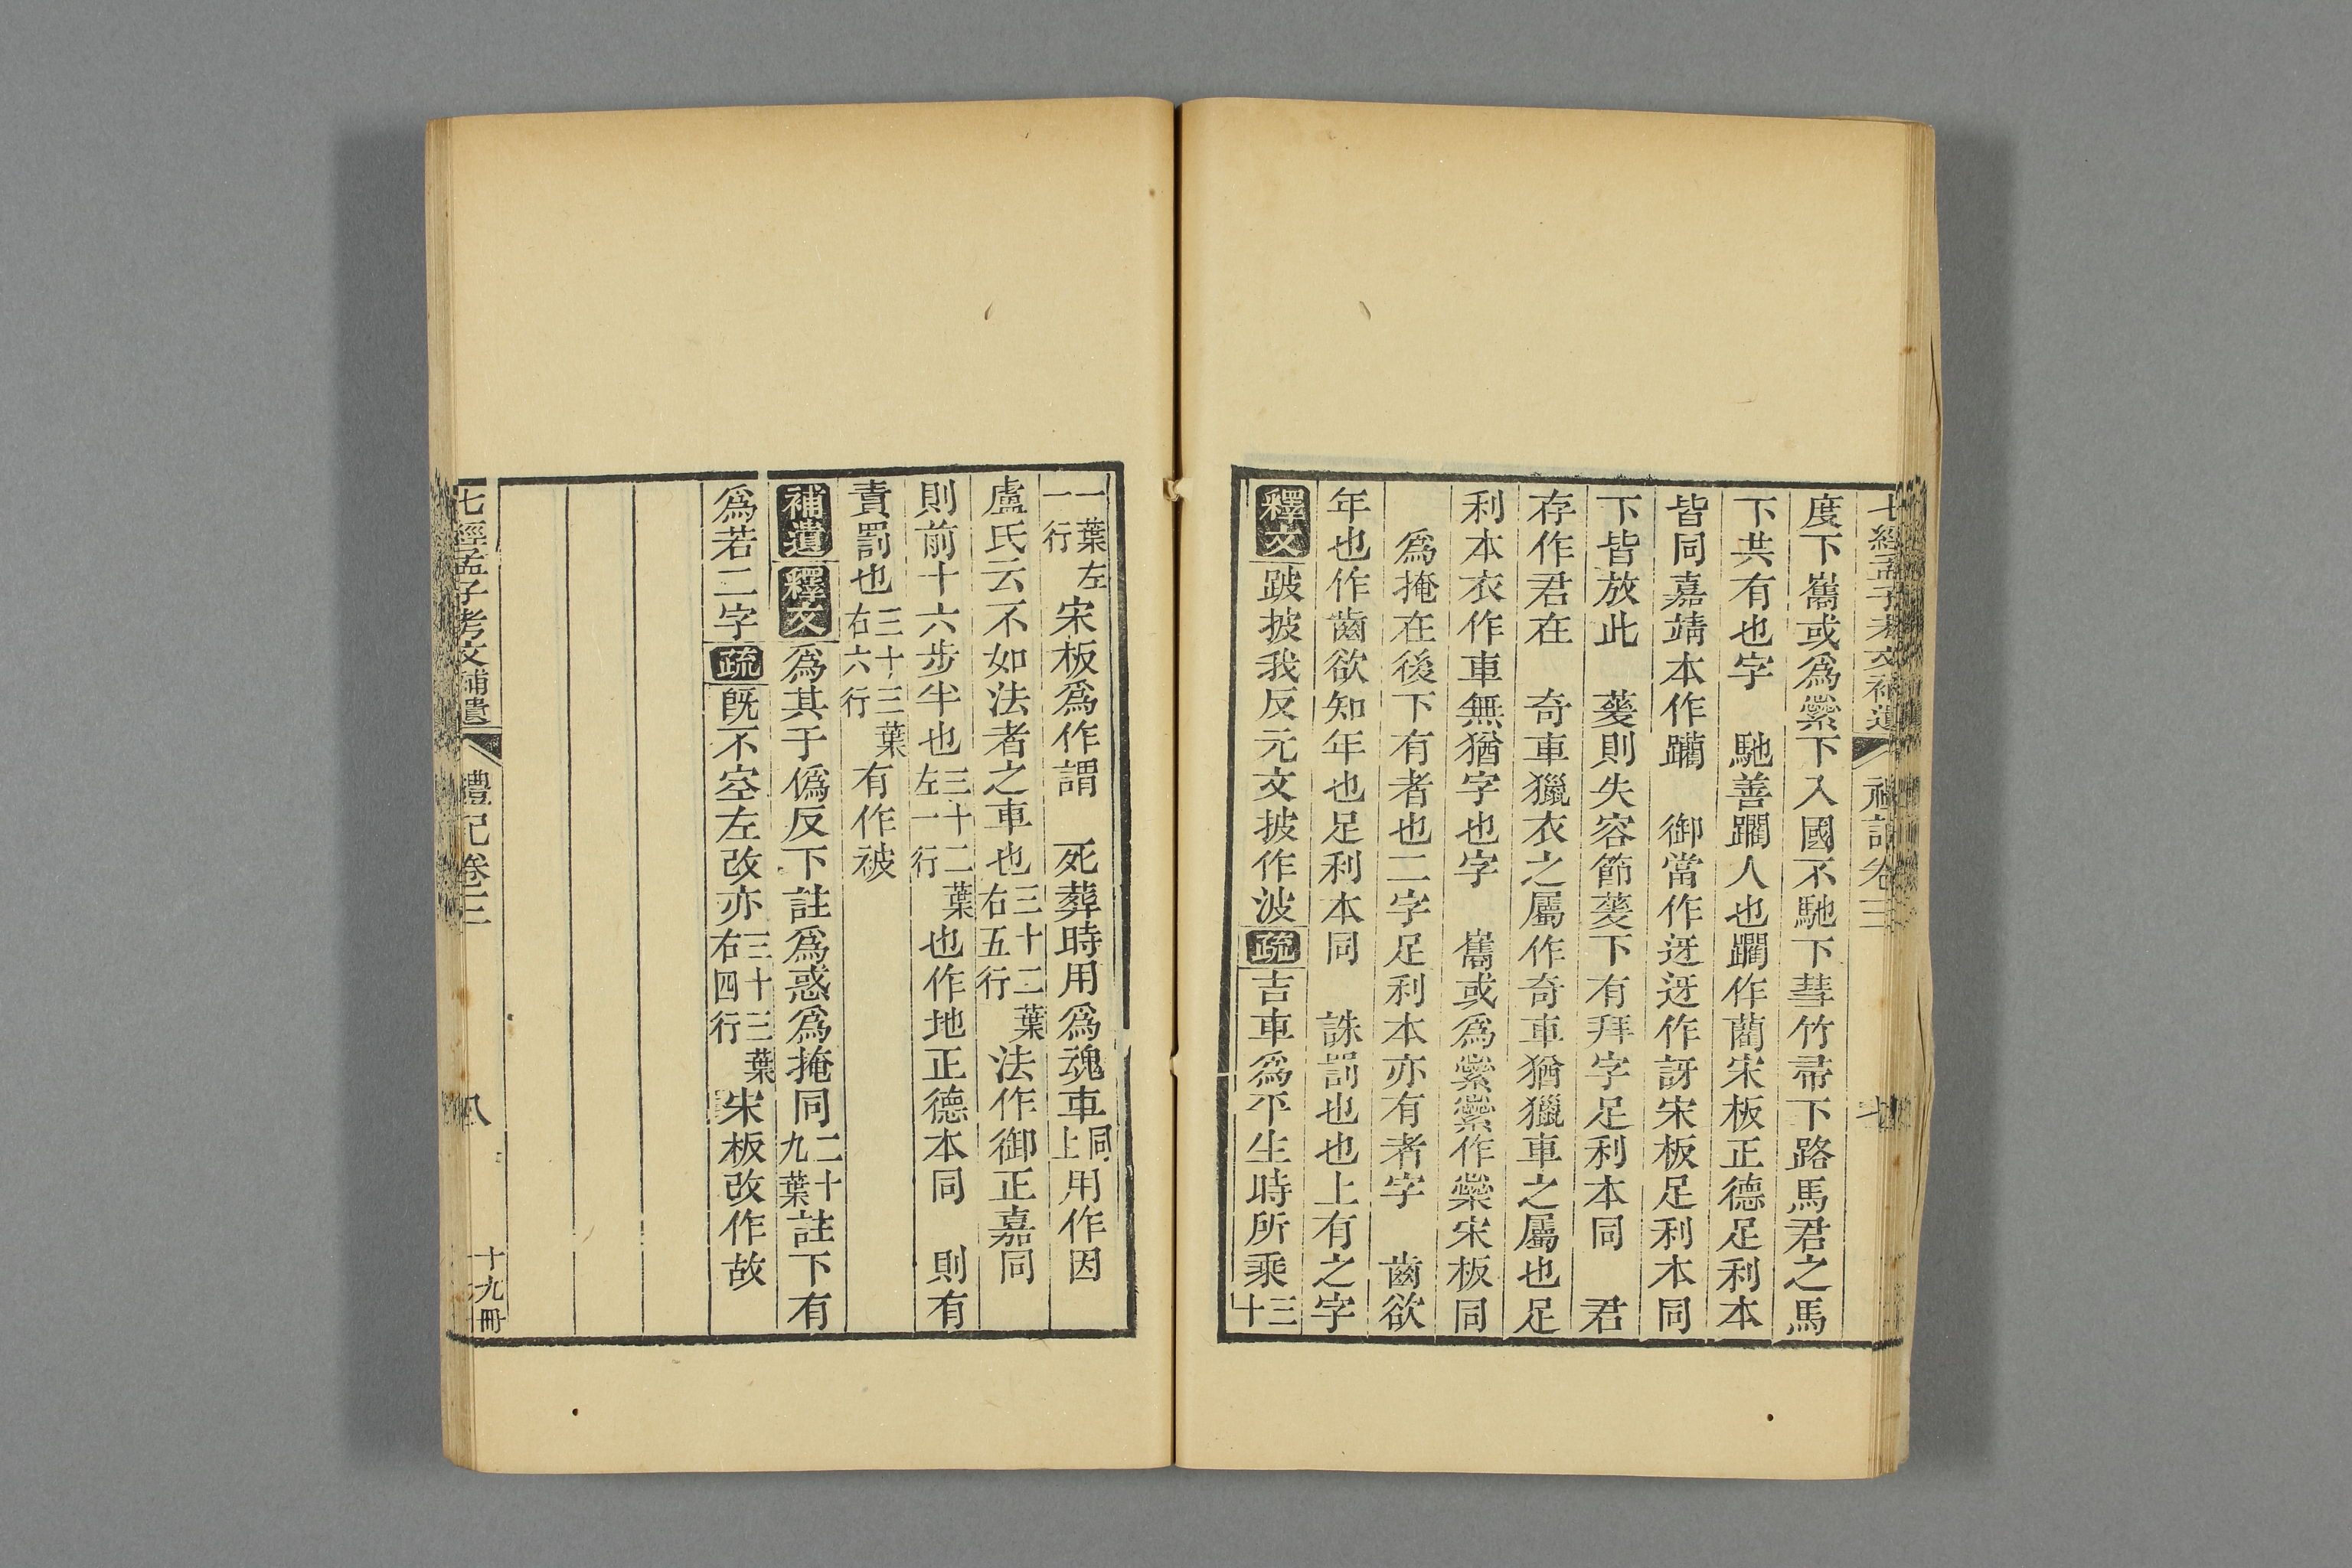 七經孟子考文補遺 禮記卷三 七
度下巂或爲䌷下入國不馳下彗竹帚下路馬君之馬
下共有也字 馳善躙人也躙作藺宋板正德足利本
皆同嘉靖本作躪 御當作迓迓作訝宋板足利本同
下皆放此 蓌則失容節蓌下有拜字足利本同 君
存作君在 奇車獵衣之屬作奇車猶獵車之屬也足
利本衣作車無猶字也字 巂或爲繠繠作橤宋板同
爲掩在後下有者也二字足利本亦有者字 齒欲
年也作齒欲知年也足利本同 誅罰也也上有之字
釋文跛披我反元文披作波疏吉車爲平生時所乘三十
一葉左一行宋板爲作謂 死葬時用爲魂車同上用作因
盧氏云不如法者之車也三十二葉右五行法作御正嘉同
則前十六步半也三十二葉左一行也作地正德本同 則有
責罰也三十三葉右六行有作被
補遺釋文爲其于僞反下註爲惑爲掩同二十九葉註下有
爲若二字疏旣不空左改亦三十三葉右四行宋板改作故
七經孟子考文補遺 禮記卷三 八 十九冊